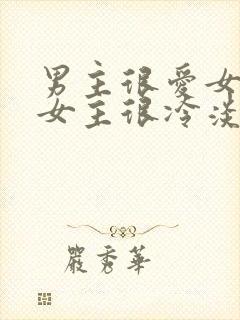 男主很愛女
女主很冷淡
嚴秀華